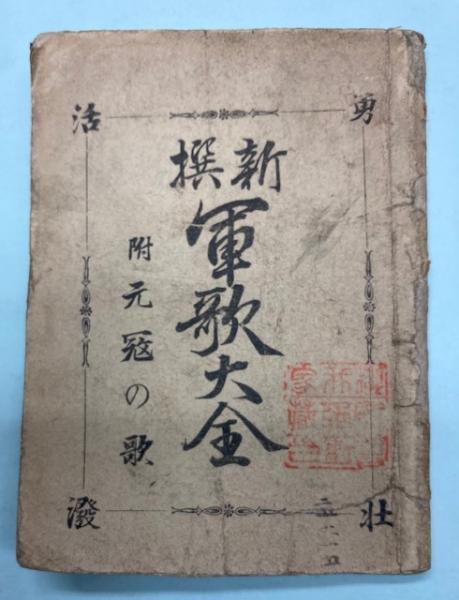 勇壮
活潑
新撰
軍歌大全
附元冦の歌